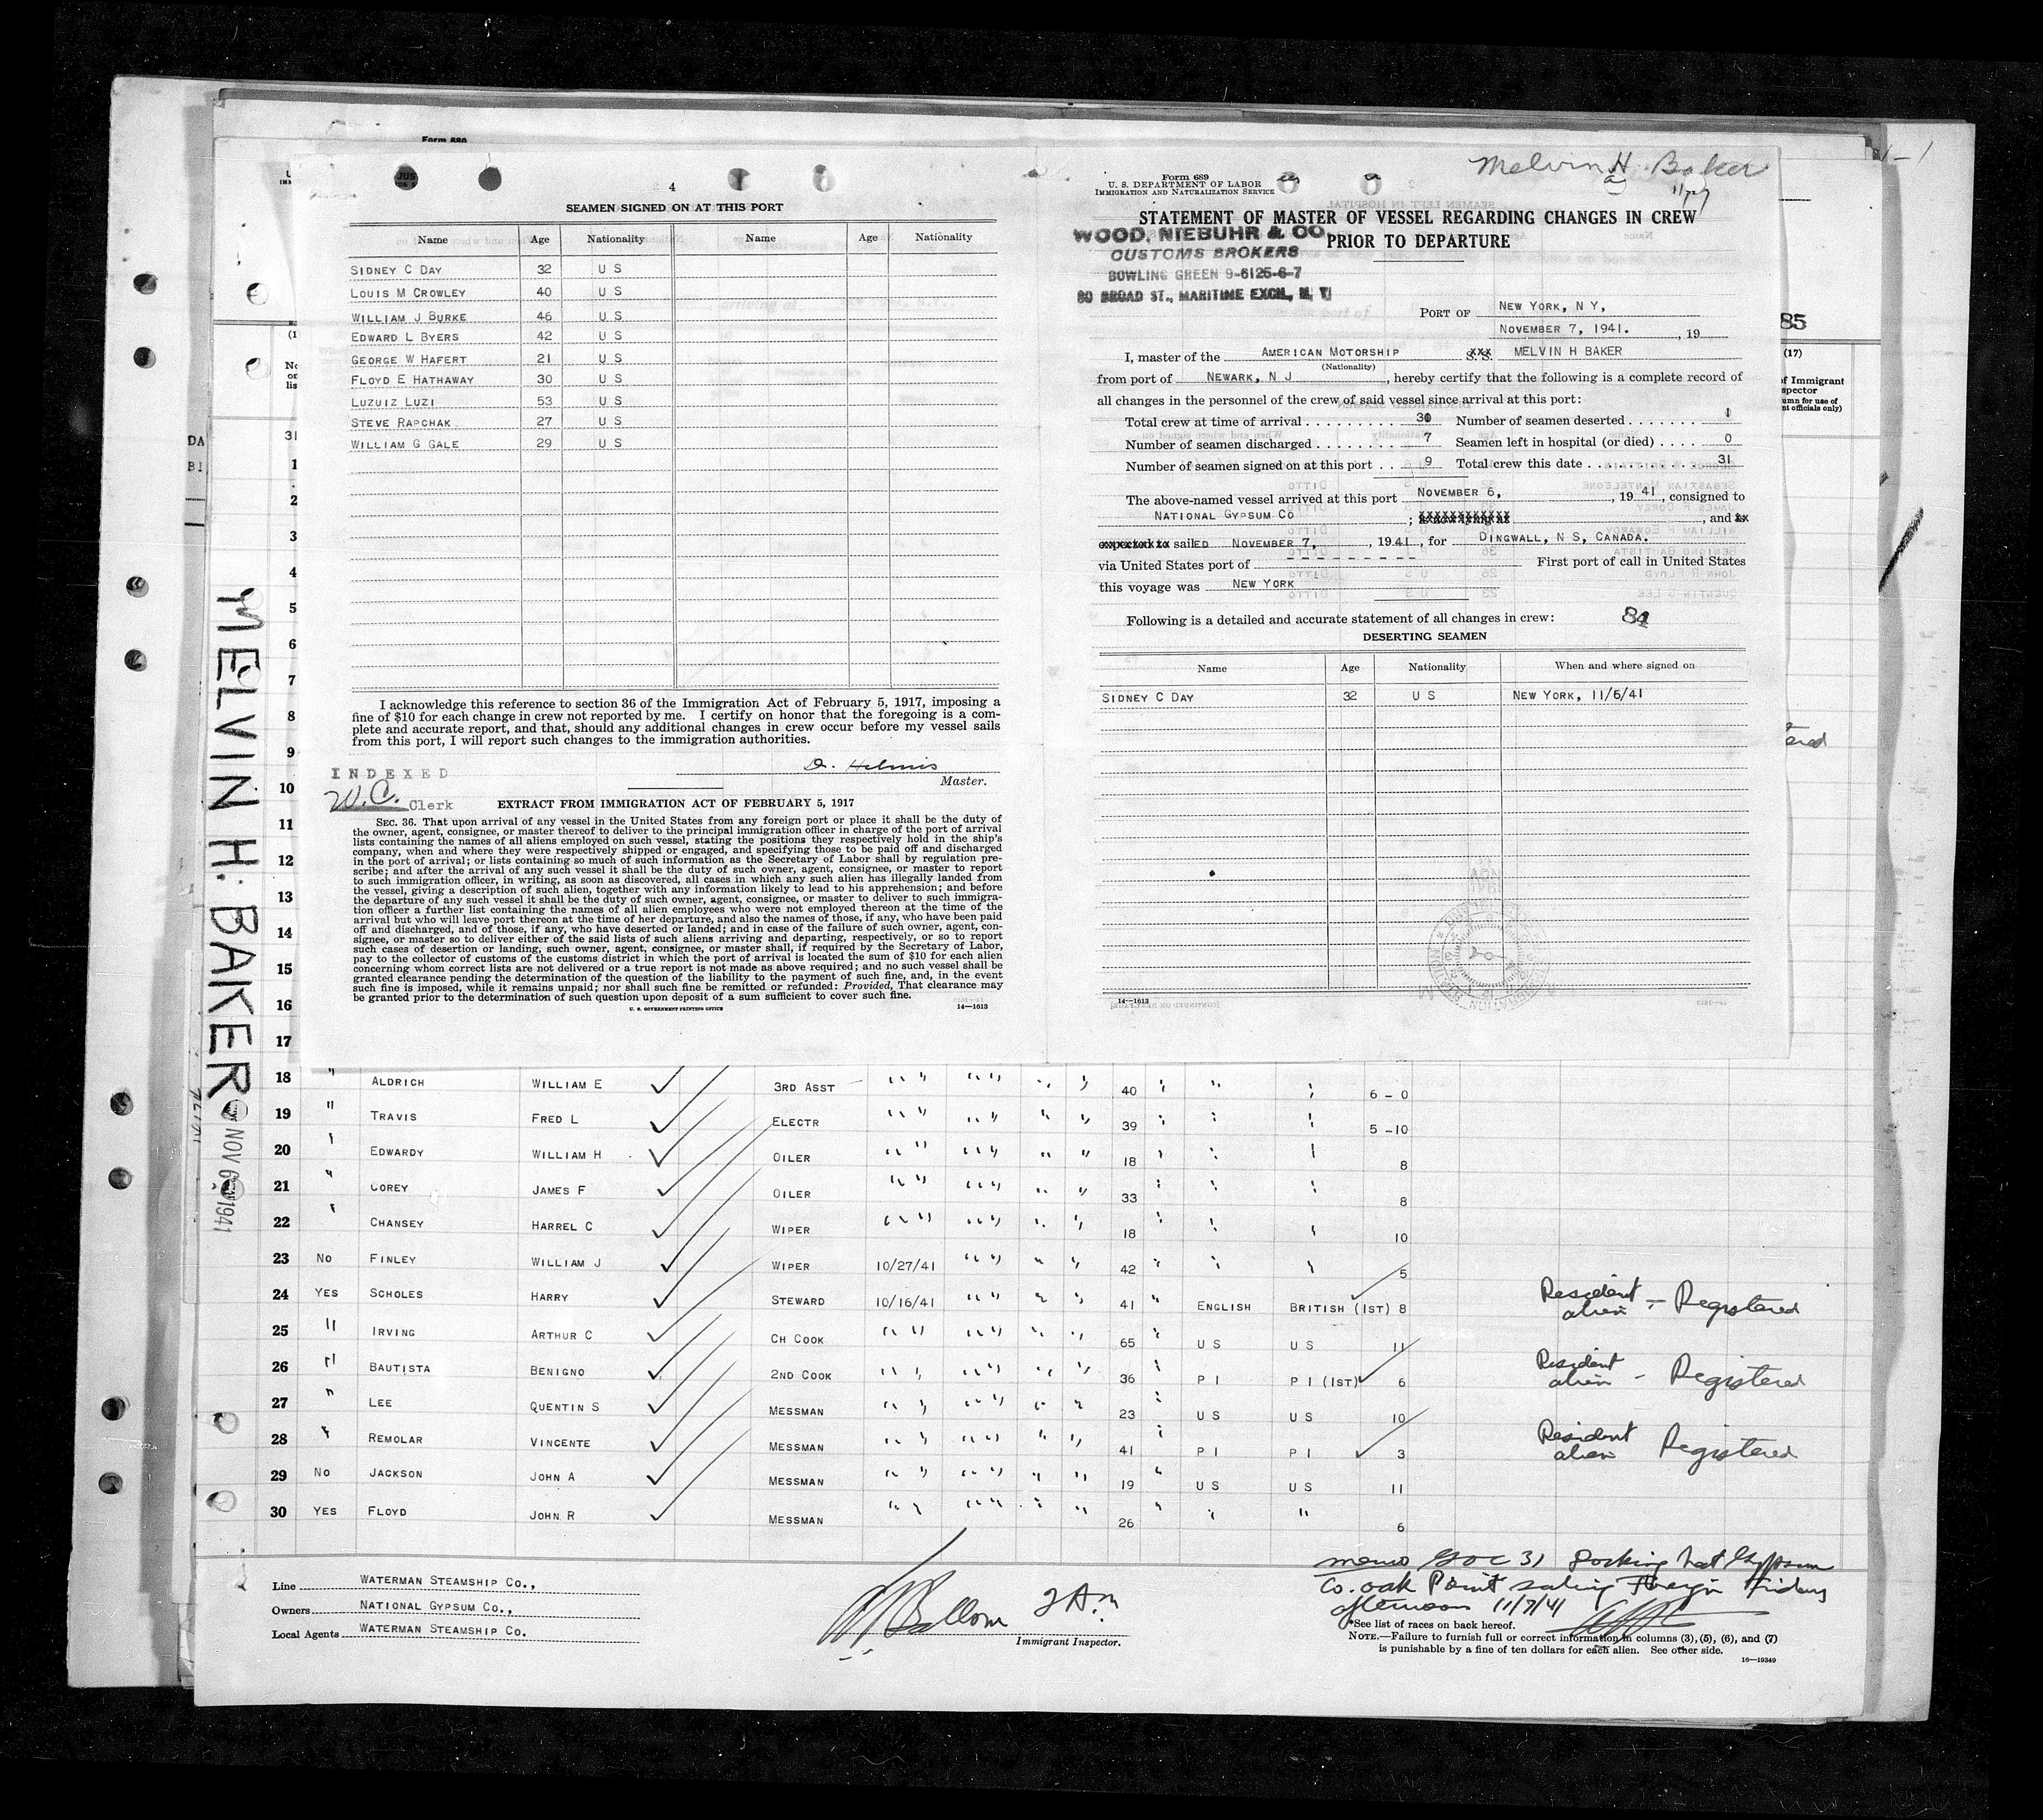 Form 689
4
SEAMEN SIGNED ON AT THIS PORT
Name Age Nationality Name Age Nationality
SIDNEY C DAY 32 U S
LOUIS M CROWLEY 40 U S
WILLIAM J BURKE 46 U S
EDWARD L BYERS 42 U S
GEORGE W HAFERT 21 U S
FLOYD E HATHAWAY 30 U S
LUZUIZ LUZI 53 U S
STEVE RAPCHAK 27 U S
WILLIAM G GALE 29 U S
I acknowledge this reference to section 36 of the Immigration Act of February 5, 1917, imposing a
fine of $10 for each change in crew not reported by me. I certify on honor that the foregoing is a com-
plete and accurate report, and that, should any additional changes in crew occur before my vessel sails
from this port, I will report such changes to the immigration authorities.
Master.
INDEXED
W.C. Clerk
EXTRACT FROM IMMIGRATION ACT OF FEBRUARY 5, 1917
SEC. 36. That upon arrival of any vessel in the United States from any foreign port or place it shall be the duty of
the owner, agent, consignee, or master thereof to deliver to the principal immigration officer in charge of the port of arrival
lists containing the names of all aliens employed on such vessel, stating the positions they respectively hold in the ship's
company, when and where they were respectively shipped or engaged, and specifying those to be paid off and discharged
in the port of arrival; or lists containing so much of such information as the Secretary of Labor shall by regulation pre-
scribe; and after the arrival of any such vessel it shall be the duty of such owner, agent, consignee, or master to report
to such immigration officer, in writing, as soon as discovered, all cases in which any such alien has illegally landed from
the vessel, giving a description of such alien, together with any information likely to lead to his apprehension; and before
the departure of any such vessel it shall be the duty of such owner, agent, consignee, or master to deliver to such immigra-
tion officer a further list containing the names of all alien employees who were not employed thereon at the time of the
arrival but who will leave port thereon at the time of her departure, and also the names of those, if any, who have been paid
off and discharged, and of those, if any, who have deserted or landed; and in case of the failure of such owner, agent, con-
signee, or master so to deliver either of the said lists of such aliens arriving and departing, respectively, or so to report
such cases of desertion or landing, such owner, agent, consignee, or master shall, if required by the Secretary of Labor,
pay to the collector of customs of the customs district in which the port of arrival is located the sum of $10 for each alien
concerning whom correct lists are not delivered or a true report is not made as above required; and no such vessel shall be
granted clearance pending the determination of the question of the liability to the payment of such fine, and, in the event
such fine is imposed, while it remains unpaid; nor shall such fine be remitted or refunded: Provided, That clearance may
be granted prior to the determination of such question upon deposit of a sum sufficient to cover such fine.
U. S. GOVERNMENT PRINTING OFFICE 14—1613
Melvin H Baker
Form 689
U. S. DEPARTMENT OF LABOR
IMMIGRATION AND NATURALIZATION SERVICE
STATEMENT OF MASTER OF VESSEL REGARDING CHANGES IN CREW
PRIOR TO DEPARTURE
WOOD, NIEBUHR & CO.
CUSTOMS BROKERS
BOWLING GREEN 9-6125-6-7
80 BROAD ST., MARITIME EXCH., N. Y.
PORT OF NEW YORK, N Y,
NOVEMBER 7, 1941. , 19
I, master of the AMERICAN MOTORSHIP S.S. MELVIN H BAKER
(Nationality)
from port of NEWARK, N J , hereby certify that the following is a complete record of
all changes in the personnel of the crew of said vessel since arrival at this port:
Total crew at time of arrival 30 Number of seamen deserted 1
Number of seamen discharged 7 Seamen left in hospital (or died) 0
Number of seamen signed on at this port 9 Total crew this date 31
The above-named vessel arrived at this port NOVEMBER 6, , 19 41, consigned to
NATIONAL GYPSUM CO ; is now lying at , and is
expected to sailED NOVEMBER 7, , 1941, for DINGWALL, N S, CANADA.
via United States port of First port of call in United States
this voyage was NEW YORK
Following is a detailed and accurate statement of all changes in crew:
DESERTING SEAMEN
Name Age Nationality When and where signed on
SIDNEY C DAY 32 U S NEW YORK, 11/6/41
14—1613
85
(17)
of Immigrant
MELVIN H. BAKER
NOV 6 1941
31
1
2
3
4
5
6
7
8
9
10
11
12
13
14
15
16
17
18 " ALDRICH WILLIAM E 3RD ASST " " " " 40 " " " 6 - 0
19 " TRAVIS FRED L ELECTR " " " " 39 " " " 5 -10
20 " EDWARDY WILLIAM H OILER " " " " 18 " " " 8
21 " COREY JAMES F OILER " " " " 33 " " " 8
22 " CHANSEY HARREL C WIPER " " " " 18 " " " 10
23 NO FINLEY WILLIAM J WIPER 10/27/41 " " " 42 " " " 5
24 YES SCHOLES HARRY STEWARD 10/16/41 " " " 41 " ENGLISH BRITISH (1ST) 8 Resident alien - Registered
25 " IRVING ARTHUR C CH COOK " " " " 65 " U S U S 11
26 " BAUTISTA BENIGNO 2ND COOK " " " " 36 " P I P I (1ST) 6 Resident alien - Registered
27 " LEE QUENTIN S MESSMAN " " " " 23 " U S U S 10
28 " REMOLAR VINCENTE MESSMAN " " " " 41 " P I P I 3 Resident alien Registered
29 NO JACKSON JOHN A MESSMAN " " " " 19 " U S U S 11
30 YES FLOYD JOHN R MESSMAN " " " " 26 " " " 6
Line WATERMAN STEAMSHIP CO.,
Owners NATIONAL GYPSUM CO.,
Local Agents WATERMAN STEAMSHIP CO.
Immigrant Inspector.
Co. oak Point sailing Foreign Friday
afternoon 11/7/41
*See list of races on back hereof.
NOTE.—Failure to furnish full or correct information in columns (3), (5), (6), and (7)
is punishable by a fine of ten dollars for each alien. See other side.
16—19349